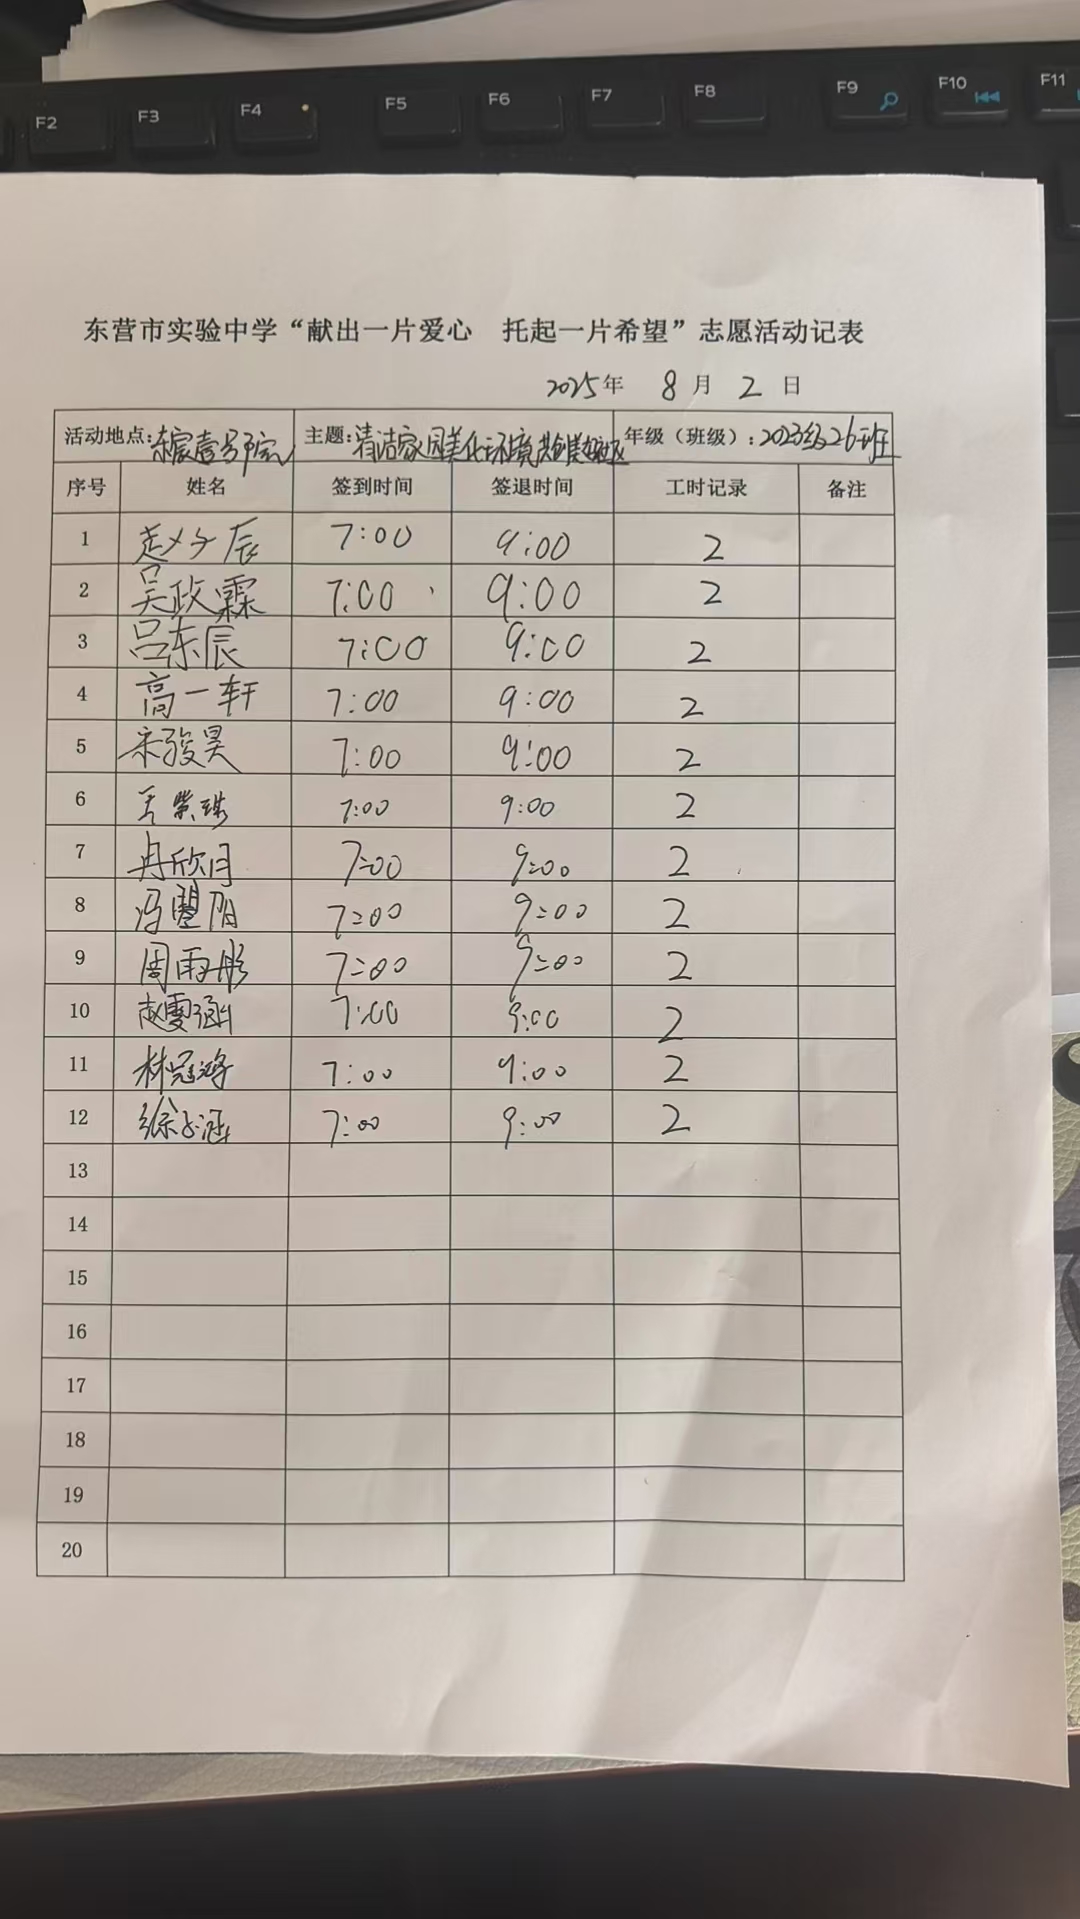 F2 F3 F4 F5 F6 F7 F8 F9 F10 F11
东营市实验中学“献出一片爱心 托起一片希望”志愿活动记表
2025年 8月 2日
活动地点: 主题:清洁家园美化环境 年级（班级）:2023级26班
序号 姓名 签到时间 签退时间 工时记录 备注
1 赵子辰 7:00 9:00 2
2 吴政霖 7:00 9:00 2
3 吕东辰 7:00 9:00 2
4 高一轩 7:00 9:00 2
5 宋骏昊 7:00 9:00 2
6 7:00 9:00 2
7 冉欣月 7:00 9:00 2
8 冯 阳 7:00 9:00 2
9 周雨彤 7:00 9:00 2
10 赵雯涵 7:00 9:00 2
11 林冠鸿 7:00 9:00 2
12 徐子涵 7:00 9:00 2
13
14
15
16
17
18
19
20